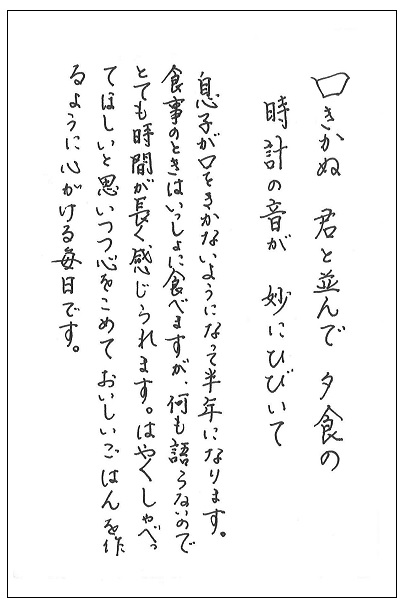 口きかぬ　君と並んで　夕食の
時計の音が　妙にひびいて
息子が口をきかないようになって半年になります。
食事のときはいっしょに食べますが、何も語らないので
とても時間が長く感じられます。はやくしゃべっ
てほしいと思いつつ心をこめておいしいごはんを作
るように心がける毎日です。